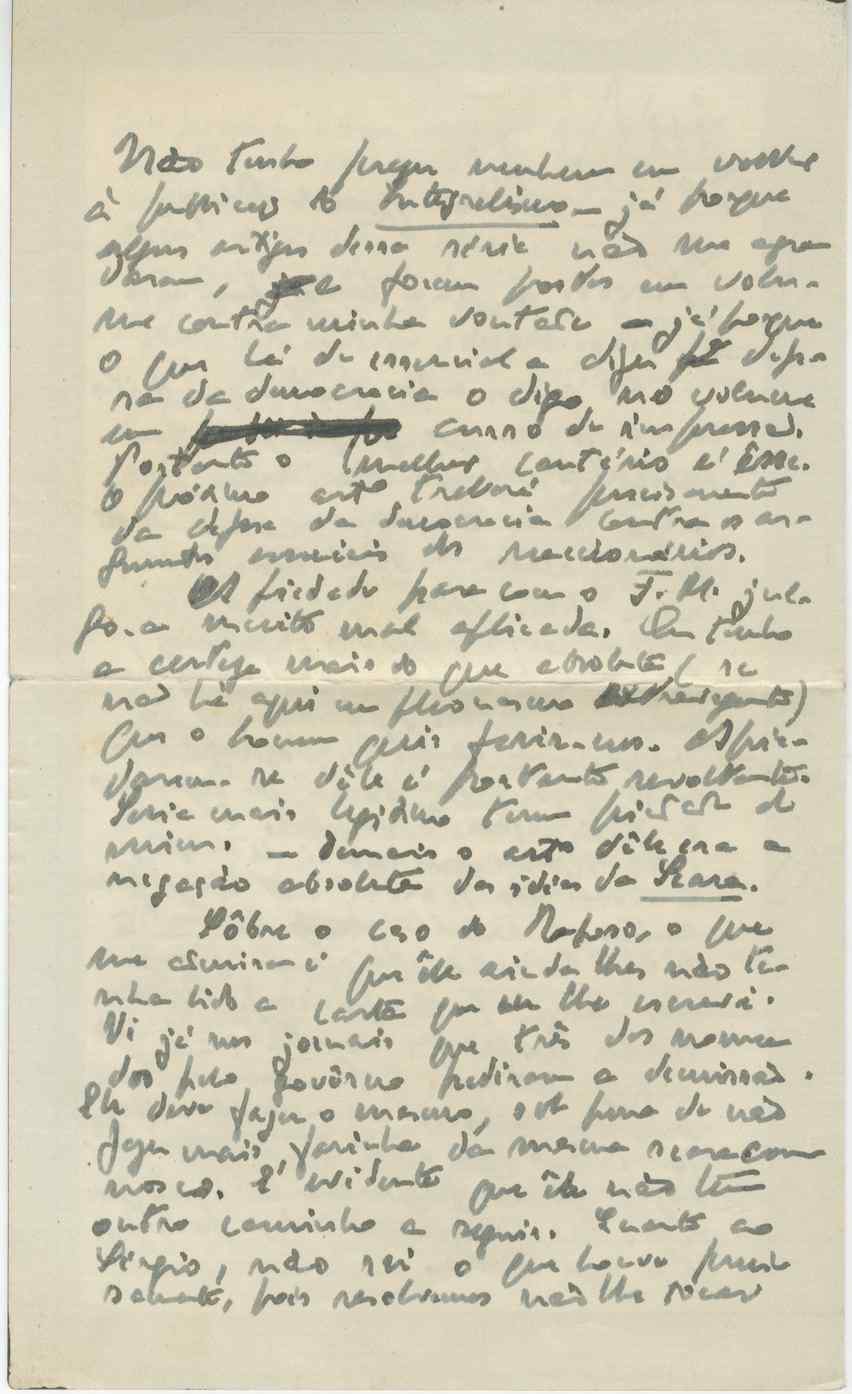 Não tenho pressa nenhuma em voltar
à justiça do Integralismo - já porque
alguns artigos dessa série não me agra-
daram, e foram postos em volu-
me contra minha vontade - já porque
o que há de essencial a dizer defe-
sa da democracia o digo no volume
em curso de impressão.
Portanto o melhor cautério é êsse.
O próximo artº tratará precisamente
da defesa da democracia contra os ar-
gumentos dos reaccionários.
A piedade para com o F. M. jul-
go-a muito mal aplicada. Eu tenho
a certeza mais do que absoluta (se
não há aqui um fenómeno)
que o homem quis ferir-nos. Apie-
darem-se dêle é portanto revoltante.
Seria mais legítimo terem piedade de
mim. - demais o artº dêle era a
negação absoluta das ideias da Seara.
Sôbre o caso do Raposo, o que
me admira é que êle ainda lhes não te-
nha lido a carta que eu lhe escrevi.
Vi já nos jornais que três dos nomea-
dos pelo govêrno pediram a demissão.
Ele deve fazer o mesmo, sob pena de não
fazer mais farinha da mesma seara com-
nosco. É evidente que êle não tem
outro caminho a seguir. Quanto ao
Sérgio, não sei o que houve preci-
samente, pois resolvemos não lhe tocar